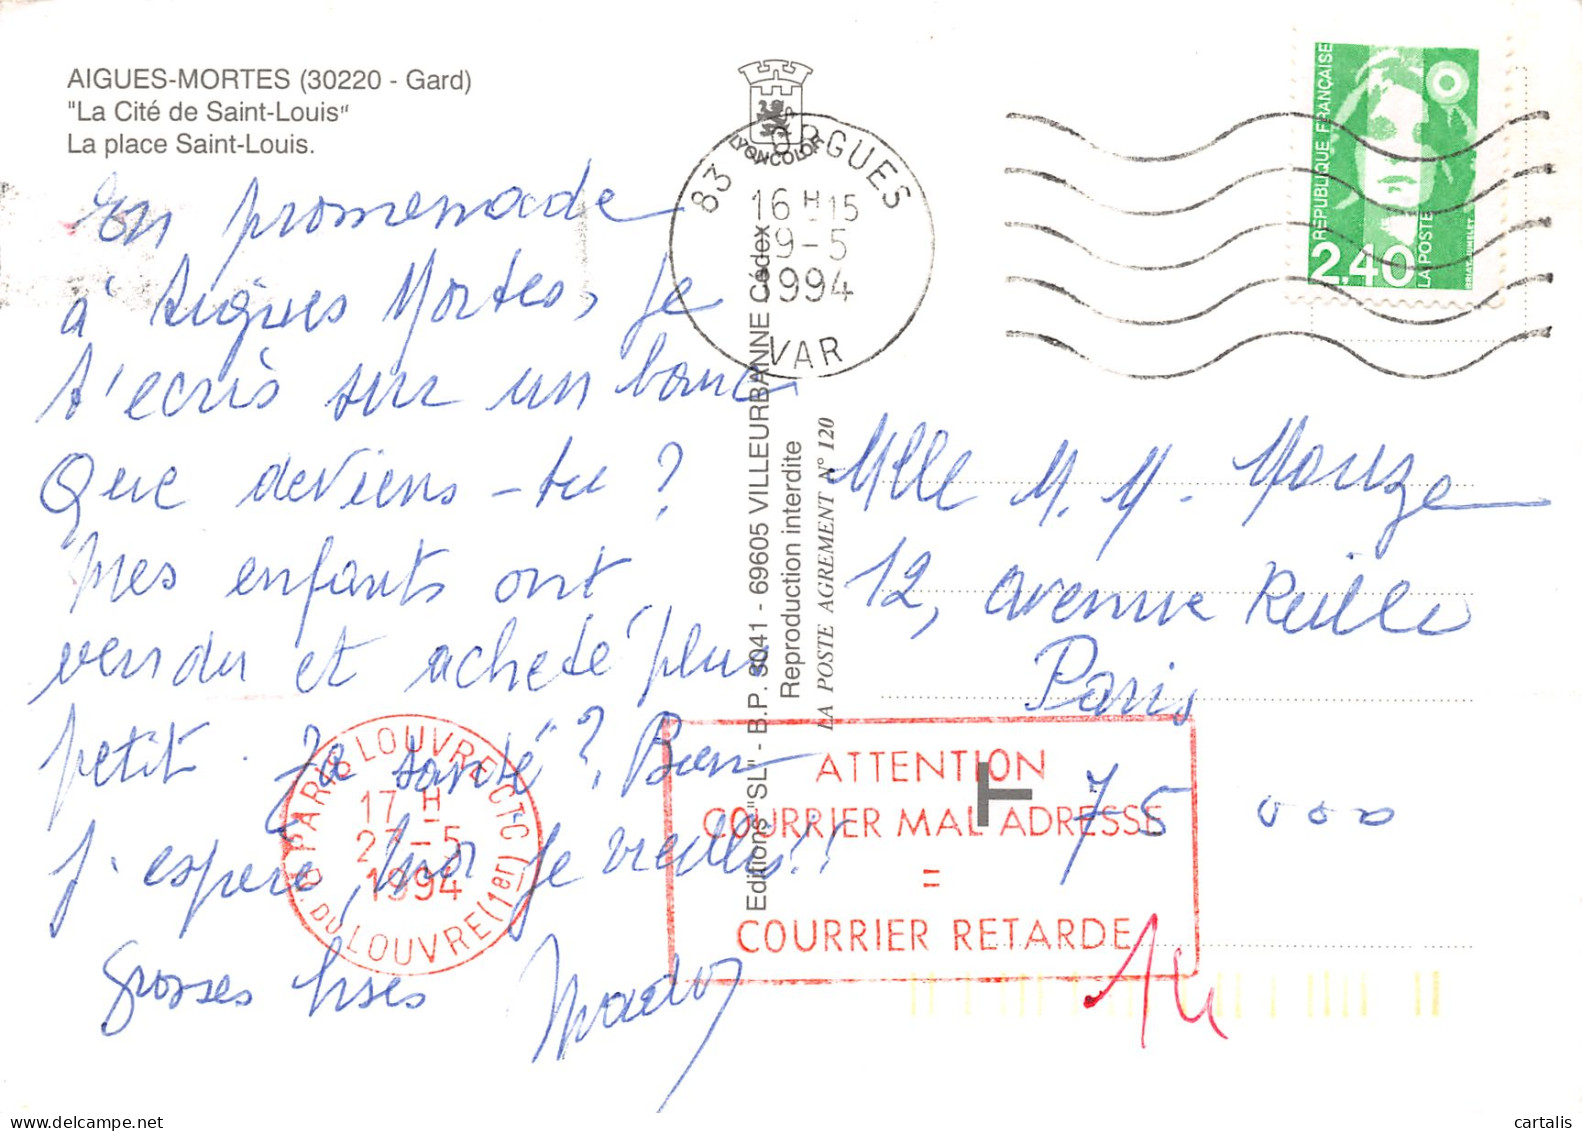 AIGUES-MORTES (30220 - Gard)
"La Cité de Saint-Louis"
La place Saint-Louis.
En promenade
à Aigues Mortes, je
t'ecris sur un banc
Que deviens-tu ?
Mes enfants ont
vendu et acheté plus
petit. Ja santé ? Bien
j'espere, moi je vieillis !!
Grosses bises
LYONCOLOR
83 ERGUES
16 H 15
9-5
1994
VAR
Editions "SL" - B.P. 3041 - 69605 VILLEURBANNE Cédex
Reproduction interdite
LA POSTE AGREMENT N° 120
REPUBLIQUE FRANÇAISE
2,40
LA POSTE
Mlle M. M. Mouze
12, avenue Reille
Paris
75 000
PARIS LOUVRE CTC
17 H
27-5
1994
R. DU LOUVRE (1er)
ATTENTION
COURRIER MAL ADRESSE
=
COURRIER RETARDE
T
14
cartalis
www.delcampe.net